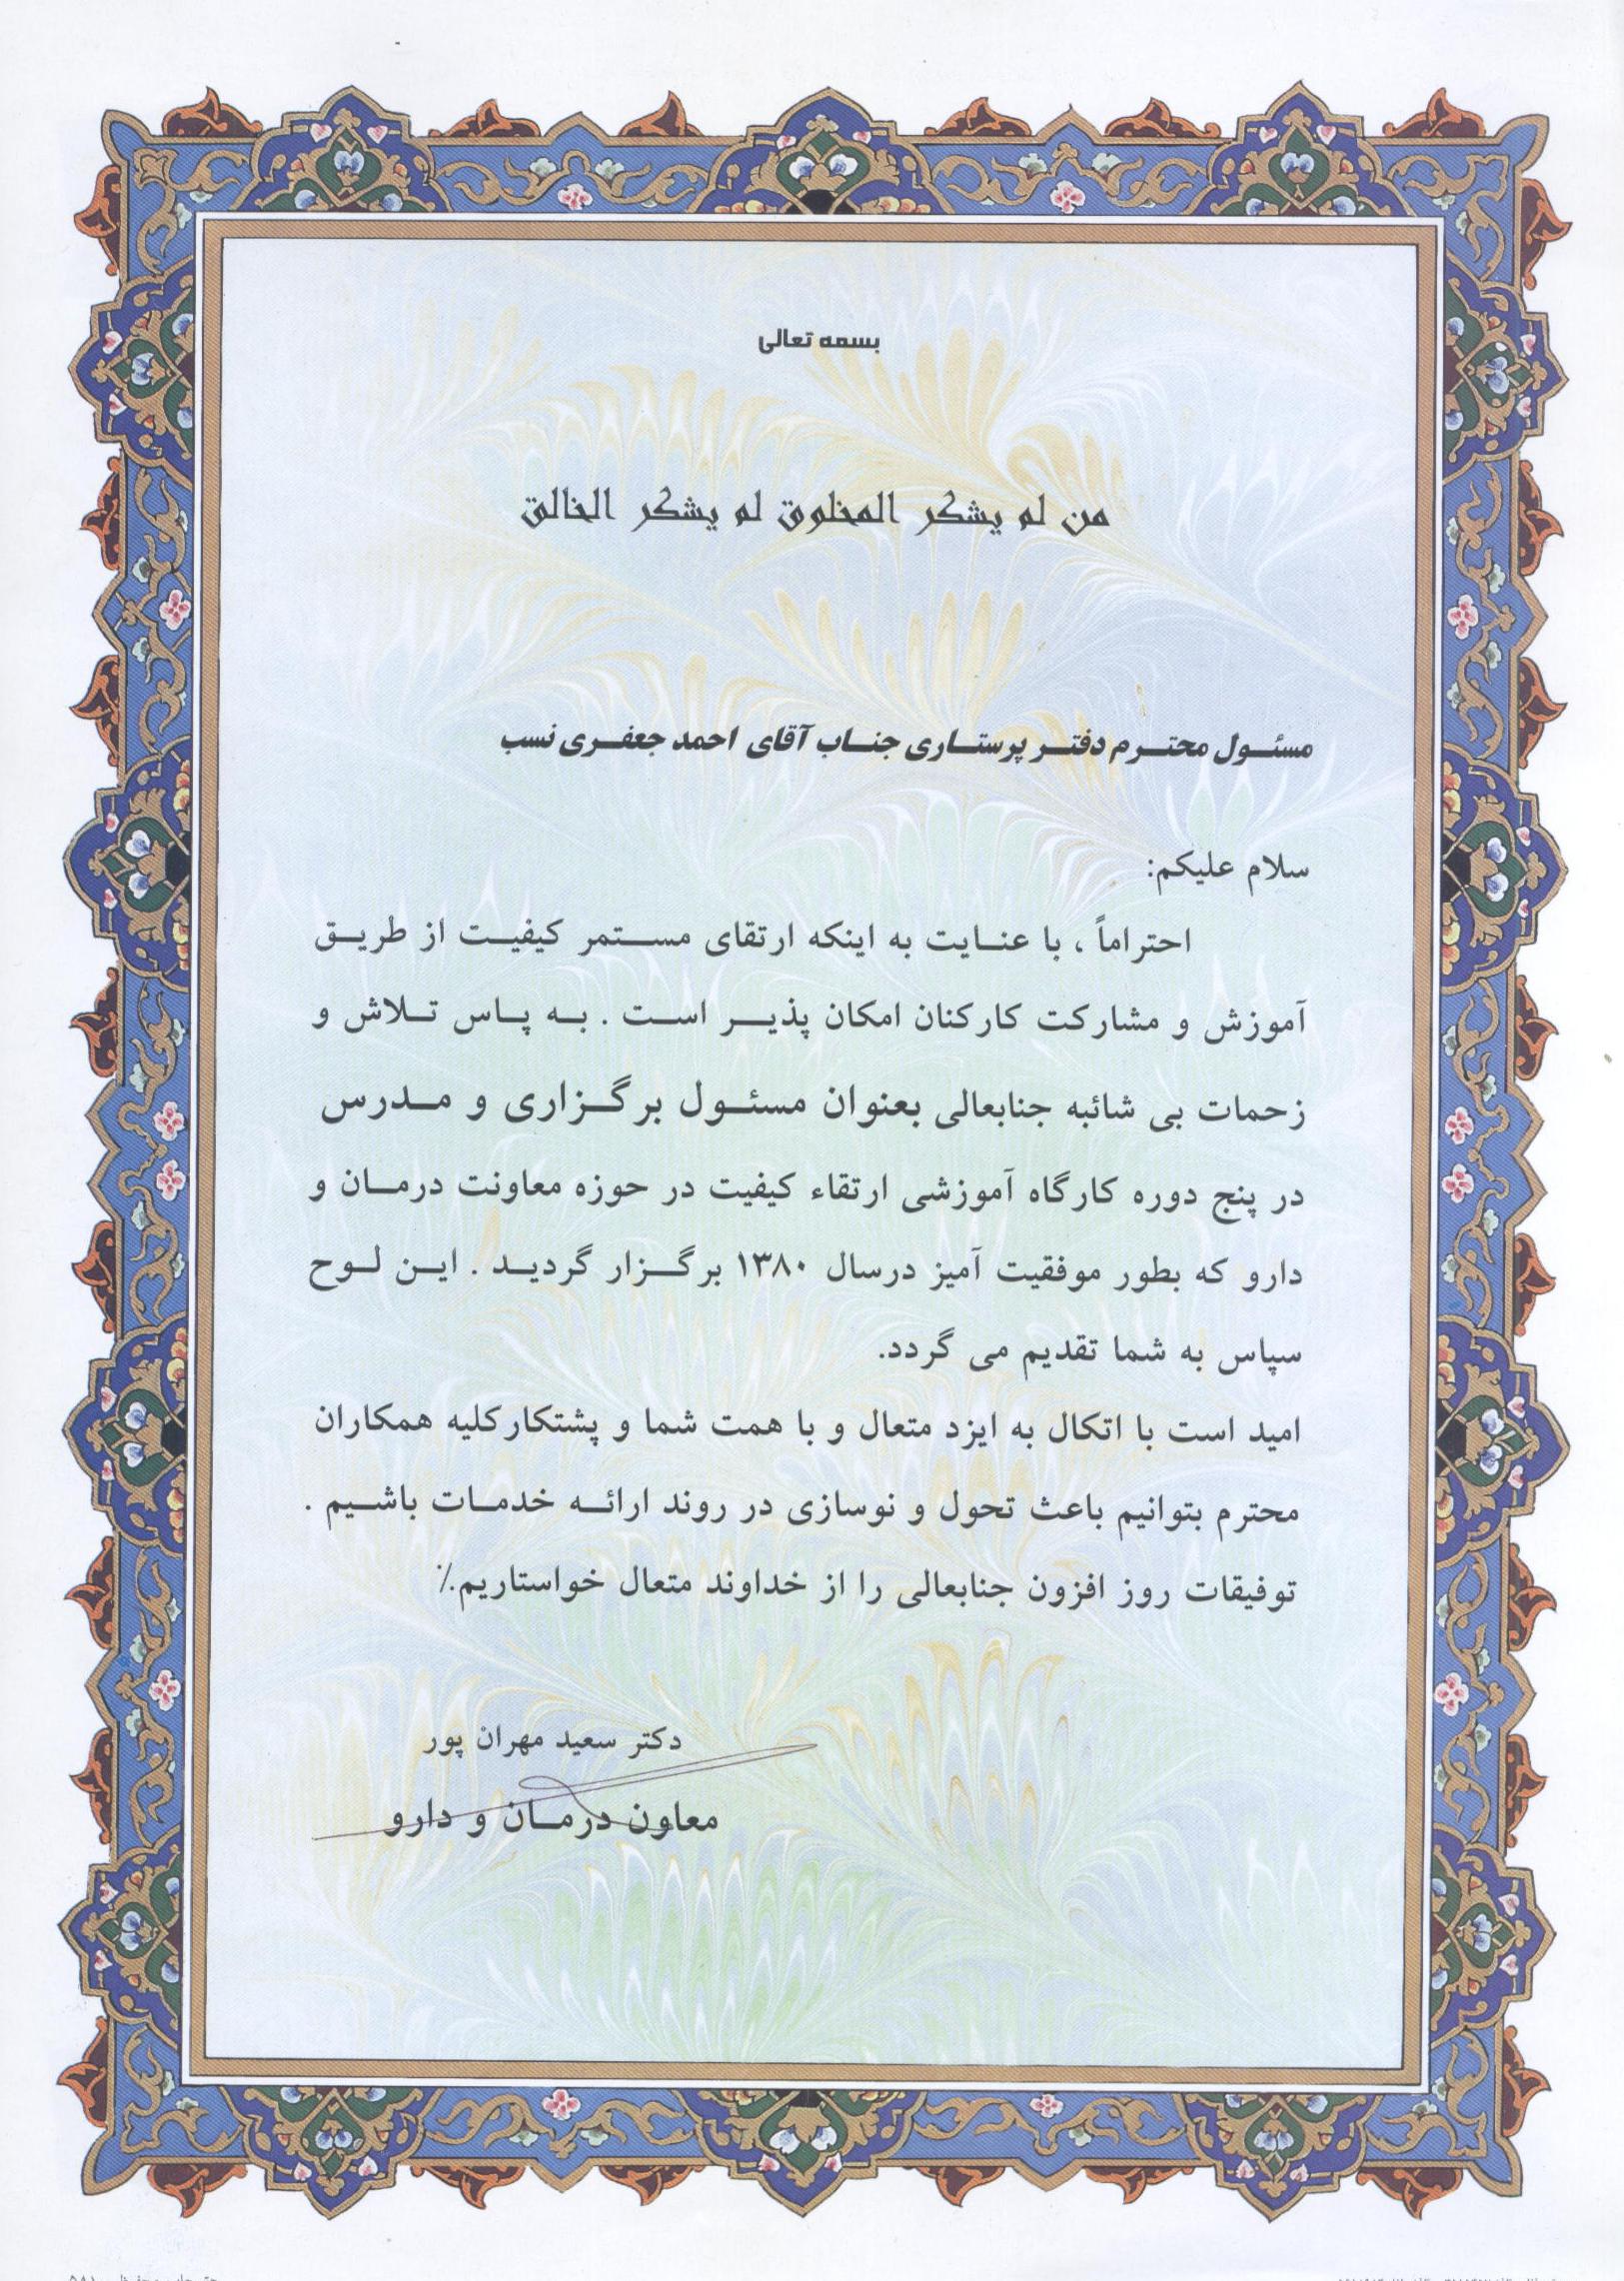 بسمه تعالی
من لم یشکر المخلوق لم یشکر الخالق
مسئـول محتـرم دفتـر پرستـاری جنـاب آقای احمد جعفـری نسب
سلام علیکم:
احتراماً ، با عنـایت به اینکه ارتقای مستـمر کیفیـت از طریـق
آموزش و مشارکت کارکنان امکان پذیـر اسـت . بـه پـاس تـلاش و
زحمات بی شائبه جنابعالی بعنوان مسئـول برگـزاری و مـدرس
در پنج دوره کارگاه آموزشی ارتقاء کیفیت در حوزه معاونت درمـان و
دارو که بطور موفقیت آمیز درسال ۱۳۸۰ برگـزار گردیـد . ایـن لـوح
سپاس به شما تقدیم می گردد.
امید است با اتکال به ایزد متعال و با همت شما و پشتکارکلیه همکاران
محترم بتوانیم باعث تحول و نوسازی در روند ارائـه خدمـات باشـیم .
توفیقات روز افزون جنابعالی را از خداوند متعال خواستاریم./
دکتر سعید مهران پور
معاون درمـان و دارو